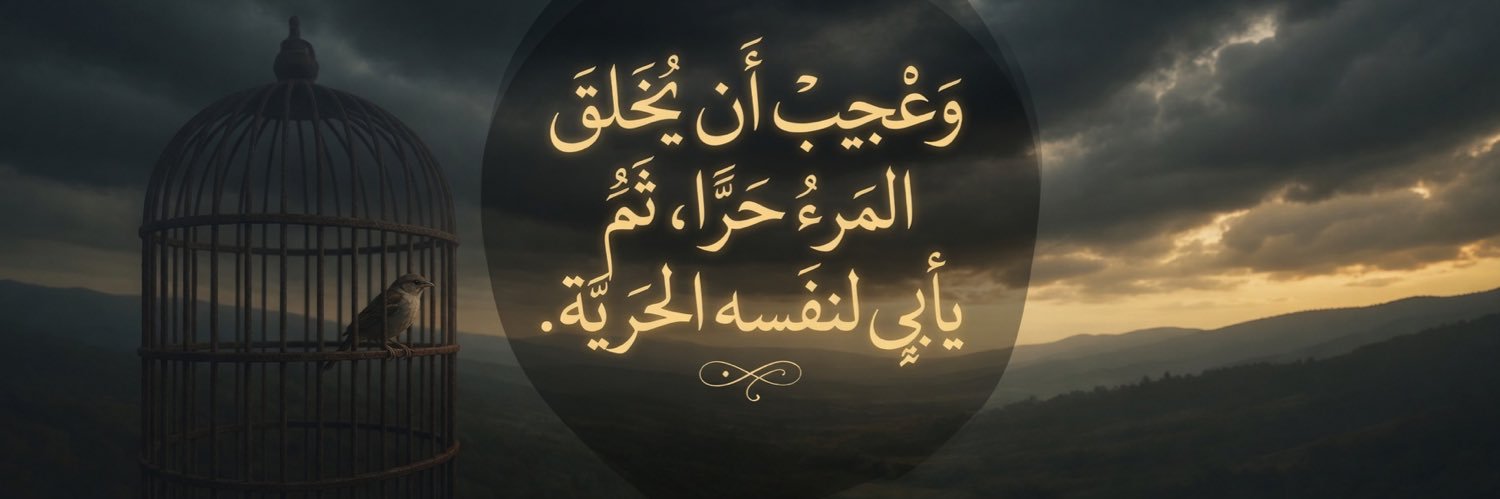 وَعْجِيبْ أَن يُخَلقَ
المَرءُ حَرًَّا، ثَمُ
يأبيِ لنفَسه الحَريََّة.